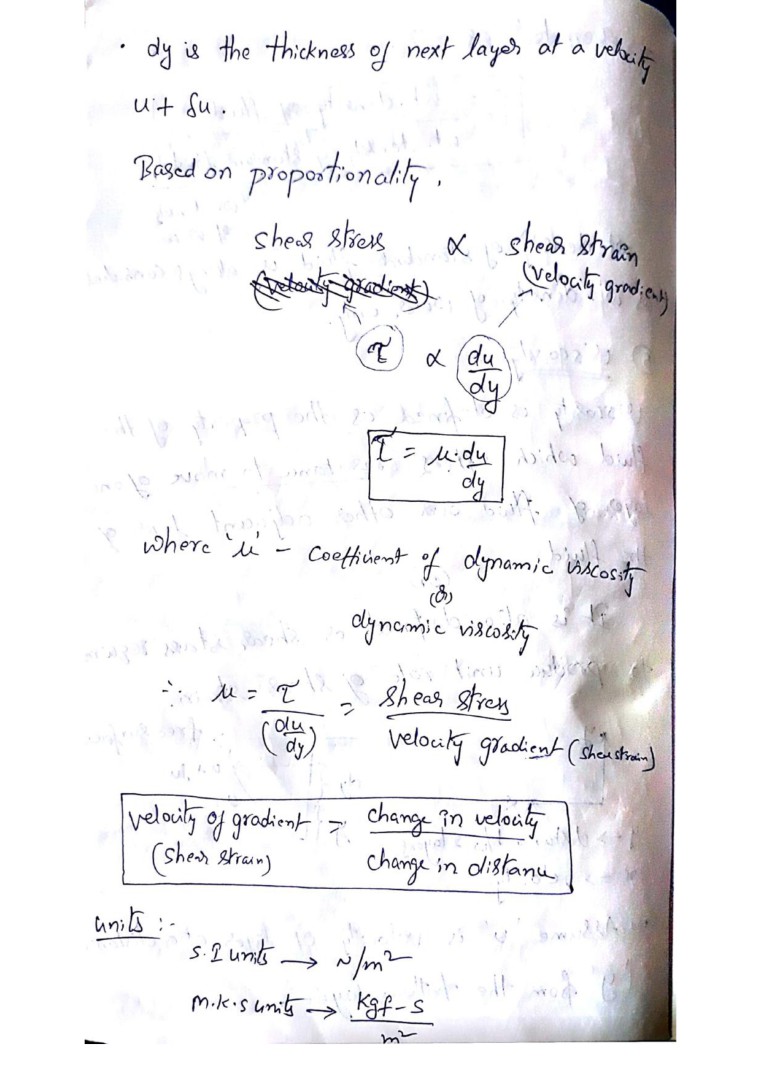 • dy is the thickness of next layer at a velocity
u + δu.
Based on proportionality,
shear stress ∝ shear strain
(velocity gradient) (velocity gradient)
τ ∝ du/dy
τ = μ. du/dy
where 'μ' - coefficient of dynamic viscosity
(or)
dynamic viscosity
∴ μ = τ/(du/dy) = shear stress/velocity gradient (shear strain)
velocity of gradient = change in velocity
(shear strain) change in distance
units :-
S.I units → N/m²
M.K.S units → Kgf-s/m²